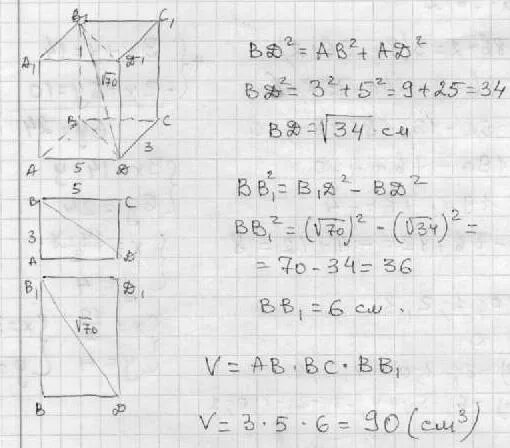 B₁ C₁
A₁ √70 D₁
B C
3
A 5 D
5
B C
3
A D
B₁ D₁
√70
B D
BD² = AB² + AD²
BD² = 3² + 5² = 9 + 25 = 34
BD = √34 см
BB₁² = B₁D² - BD²
BB₁² = (√70)² - (√34)² =
= 70 - 34 = 36
BB₁ = 6 см.
V = AB · BC · BB₁
V = 3 · 5 · 6 = 90 (см³)